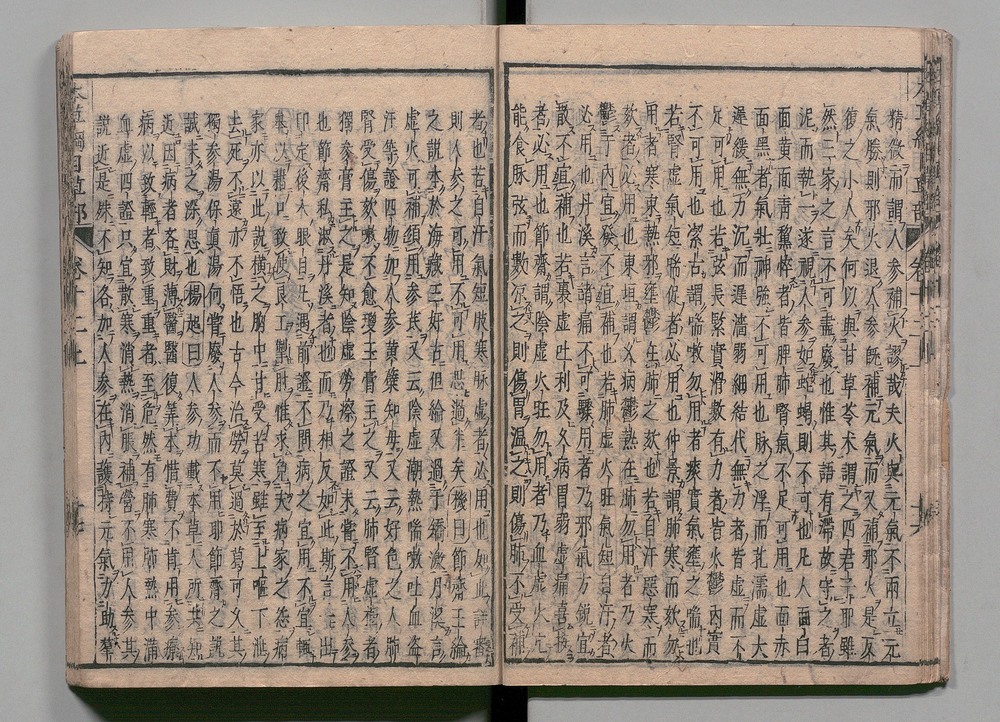 精微而謂人參補火謬哉夫火與元氣不兩立元
氣勝則邪火退人參既補元氣而又補邪火是反
復之小人矣何以與甘草苓术謂之四君子耶雖
然三家之言不可盡廢也惟其語有滯故守之者
泥而執一遂視人參如蛇蝎則不可也凡人面白
面黃面青黧悴者皆脾肺腎氣不足可用也面赤
面黑者氣壯神強不可用也脉之浮而芤濡虛大
遲緩無力沉而遲濇弱細結代無力者皆虛而不
足可用也若弦長緊實滑數有力者皆火鬱內實
不可用也潔古謂喘嗽勿用者痰實氣壅之喘也
若腎虛氣短喘促者必用也仲景謂肺寒而欬勿
用者寒束熱邪壅鬱在肺之欬也若自汗惡寒而
欬者必用也東垣謂久病鬱熱在肺勿用者乃火
鬱于內宜發不宜補也若肺虛火旺氣短自汗者
必用也丹溪言諸痛不可驟用者乃邪氣方銳宜
散不宜補也若裏虛吐利及久病胃弱虛痛喜按
者必用也節齋謂陰虛火旺勿用者乃血虛火亢
能食脉弦而數凉之則傷胃溫之則傷肺不受補
者也若自汗氣短肢寒脉虛者必用也如此詳審
則人參之可用不可用思過半矣機曰節齋王綸
之說本於海藏王好古但綸又過于矯激丹溪言
虛火可補須用參芪又云陰虛潮熱喘嗽吐血盜
汗等證四物加人參黃蘗知母又云好色之人肺
腎受傷欬嗽不愈瓊玉膏主之又云肺腎虛極者
獨參膏主之是知陰虛勞瘵之證未嘗不用人參
也節齋私淑丹溪者也而乃相反如此斯言一出
印定後人眼目凡遇前證不問病之宜用不宜輒
舉以藉口致使良工掣肘惟求免夫病家之怨病
家亦以此說橫之胸中甘受苦寒雖至上嘔下泄
去死不遠亦不悟也古今治勞莫過於葛可久其
獨參湯保真湯何嘗廢人參而不用耶節齋之說
誠未之深思也楊起曰人參功載本草人所共知
近因病者吝財薄醫醫復筭本惜費不肯用參療
病以致輕者至重重者至危然有肺寒肺熱中滿
血虛四證只宜散寒消熱消脹補營不用人參其
說近是殊不知各加人參在內護持元氣力助羣